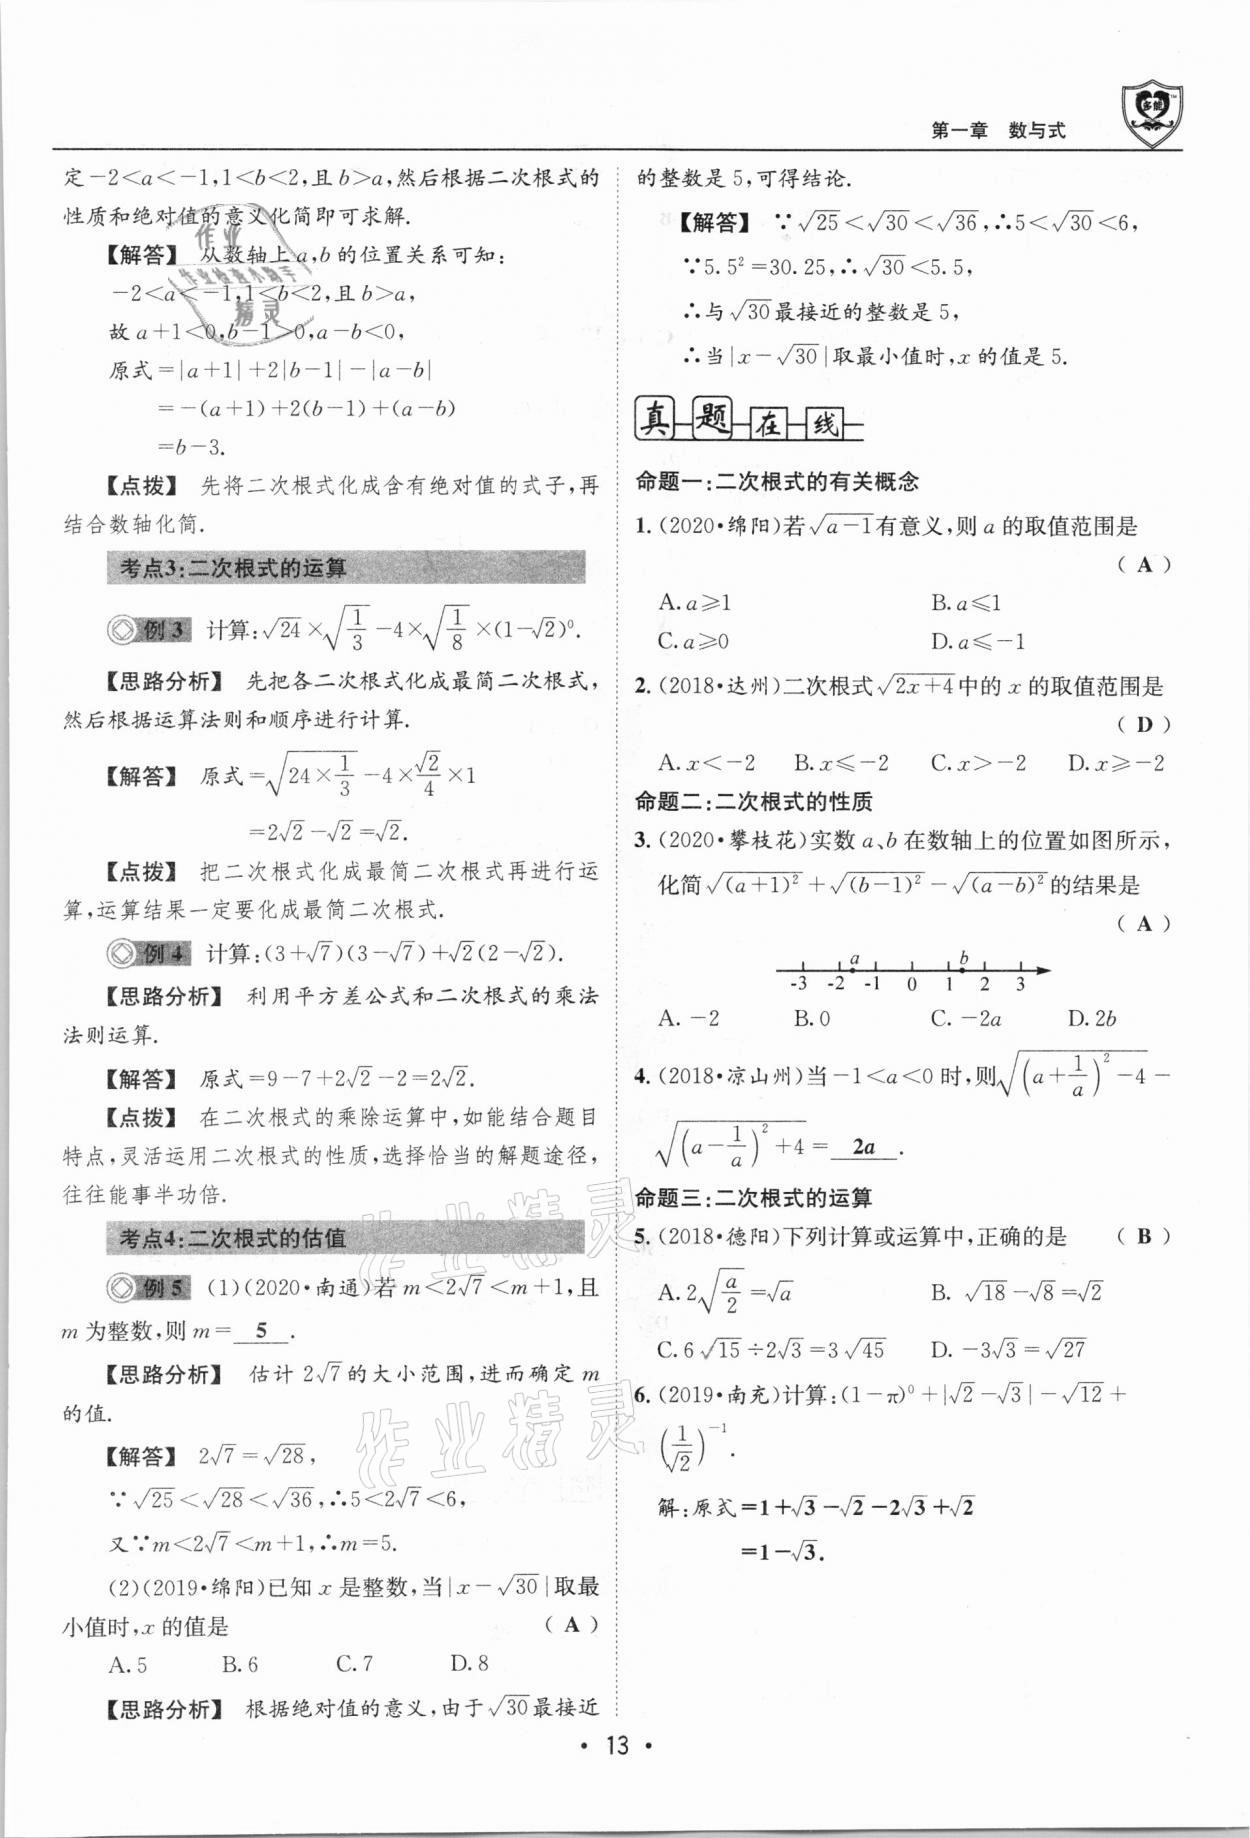 第一章　数与式
多能
TM
定－2<a<－1,1<b<2,且b>a,然后根据二次根式的
性质和绝对值的意义化简即可求解.
【解答】 从数轴上a,b的位置关系可知:
－2<a<－1,1<b<2,且b>a,
故a＋1<0,b－1>0,a－b<0,
原式＝|a＋1|＋2|b－1|－|a－b|
＝－(a＋1)＋2(b－1)＋(a－b)
＝b－3.
【点拨】 先将二次根式化成含有绝对值的式子,再
结合数轴化简.
考点3:二次根式的运算
例3 计算:√24×√(1/3)－4×√(1/8)×(1－√2)⁰.
【思路分析】 先把各二次根式化成最简二次根式,
然后根据运算法则和顺序进行计算.
【解答】 原式＝√(24×1/3)－4×√2/4×1
＝2√2－√2＝√2.
【点拨】 把二次根式化成最简二次根式再进行运
算,运算结果一定要化成最简二次根式.
例4 计算:(3＋√7)(3－√7)＋√2(2－√2).
【思路分析】 利用平方差公式和二次根式的乘法
法则运算.
【解答】 原式＝9－7＋2√2－2＝2√2.
【点拨】 在二次根式的乘除运算中,如能结合题目
特点,灵活运用二次根式的性质,选择恰当的解题途径,
往往能事半功倍.
考点4:二次根式的估值
例5 (1)(2020·南通)若m<2√7<m＋1,且
m为整数,则m＝ 5 .
【思路分析】 估计2√7的大小范围,进而确定m
的值.
【解答】 2√7＝√28,
∵√25<√28<√36,∴5<2√7<6,
又∵m<2√7<m＋1,∴m＝5.
(2)(2019·绵阳)已知x是整数,当|x－√30|取最
小值时,x的值是 （ A ）
A.5 B.6 C.7 D.8
【思路分析】 根据绝对值的意义,由于√30最接近
的整数是5,可得结论.
【解答】 ∵√25<√30<√36,∴5<√30<6,
∵5.5²＝30.25,∴√30<5.5,
∴与√30最接近的整数是5,
∴当|x－√30|取最小值时,x的值是5.
真题在线
命题一:二次根式的有关概念
1.(2020·绵阳)若√(a－1)有意义,则a的取值范围是
（ A ）
A.a⩾1 B.a⩽1
C.a⩾0 D.a⩽－1
2.(2018·达州)二次根式√(2x＋4)中的x的取值范围是
（ D ）
A.x<－2 B.x⩽－2 C.x>－2 D.x⩾－2
命题二:二次根式的性质
3.(2020·攀枝花)实数a、b在数轴上的位置如图所示,
化简√(a＋1)²＋√(b－1)²－√(a－b)²的结果是
（ A ）
a b
-3 -2 -1 0 1 2 3
A.－2 B.0 C.－2a D.2b
4.(2018·凉山州)当－1<a<0时,则√((a＋1/a)²－4)－
√((a－1/a)²＋4)＝ 2a .
命题三:二次根式的运算
5.(2018·德阳)下列计算或运算中,正确的是 （ B ）
A.2√(a/2)＝√a B.√18－√8＝√2
C.6√15÷2√3＝3√45 D.－3√3＝√27
6.(2019·南充)计算:(1－π)⁰＋|√2－√3|－√12＋
(1/√2)⁻¹.
解:原式＝1＋√3－√2－2√3＋√2
＝1－√3.
· 13 ·
作业
作业检查小助手
精灵
作业精灵
作业精灵